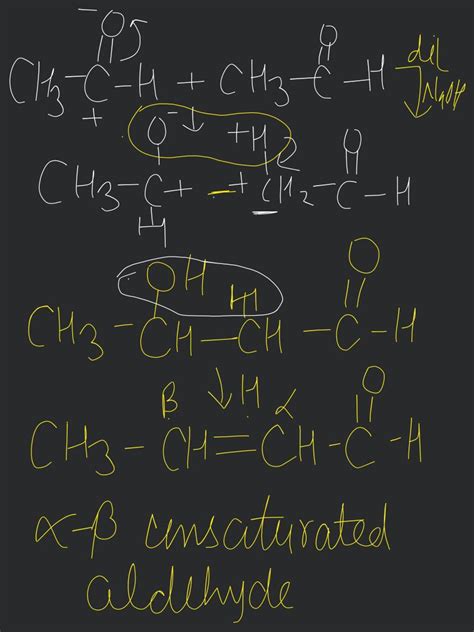 ⁻O O
CH₃-C-H + CH₃-C-H dil NaOH
+
O⁻ +H O
CH₃-C+ - + CH₂-C-H
H
OH H O
CH₃-CH-CH-C-H
β H α O
CH₃-CH=CH-C-H
α-β unsaturated
aldehyde